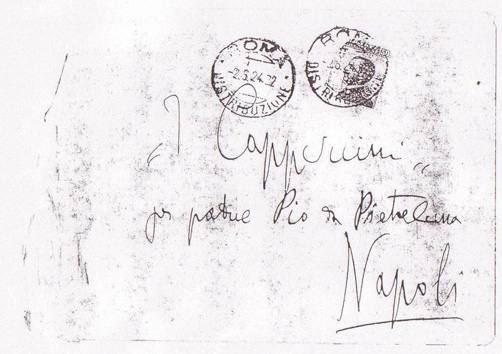 ROMA
-2.5.24.22
DISTRIBUZIONE
ROMA
DISTRIBUZIONE
"I Cappuccini"
per padre Pio da Pietrelcina
Napoli